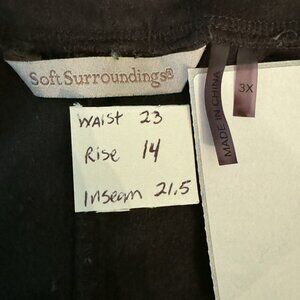 Soft Surroundings®
MADE IN CHINA
3X
WAIST 23
Rise 14
Inseam 21.5